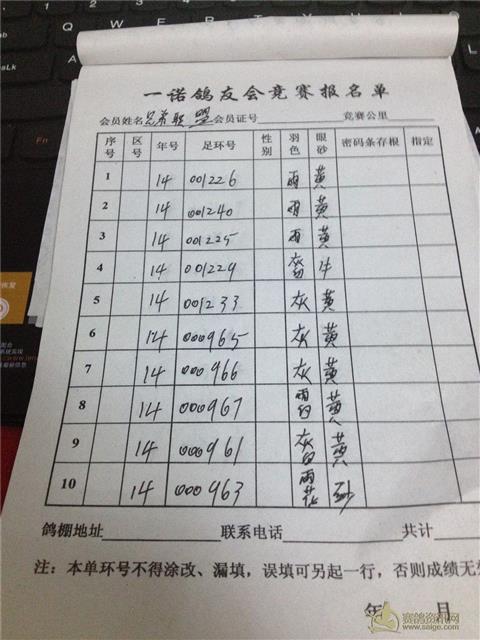 一诺鸽友会竞赛报名单
会员姓名 兄弟联盟 会员证号 竞赛公里
序号 区号 年号 足环号 性别 羽色 眼砂 密码条存根 指定
1 14 001226 雨 黄
2 14 001240 雨 黄
3 14 001225 雨 黄
4 14 001229 牛
5 14 001233 灰 黄
6 14 000965 灰 黄
7 14 000966 灰 黄
8 14 000967 雨白 黄
9 14 000961 灰白 黄
10 14 000963 雨花 砂
鸽棚地址 联系电话 共计
注：本单环号不得涂改、漏填，误填可另起一行，否则成绩无
年 月
赛鸽资讯网